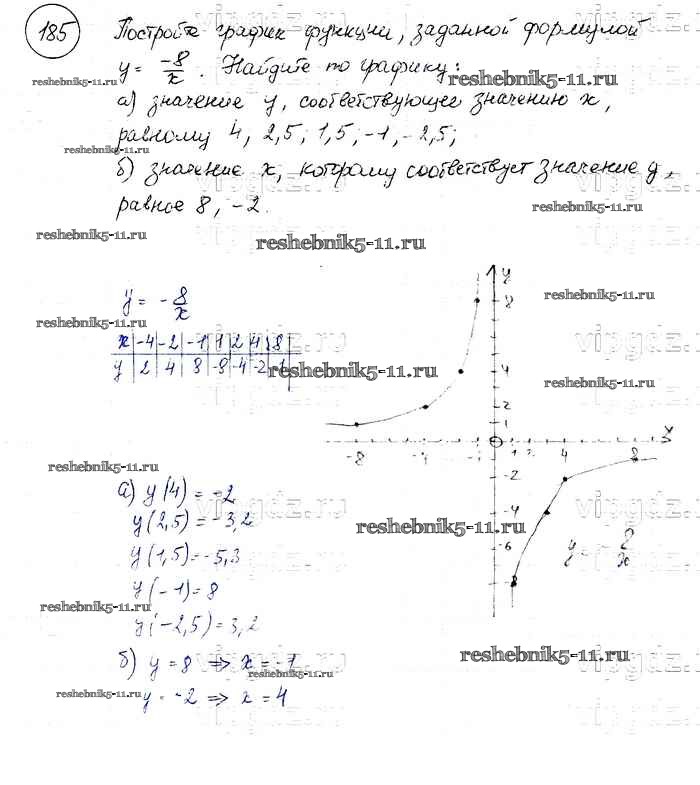 185 Постройте график функции, заданной формулой
y = -8/x . Найдите по графику:
reshebnik5-11.ru reshebnik5-11.ru
а) значение y, соответствующее значению x,
равному 4, 2,5; 1,5; -1, -2,5;
reshebnik5-11.ru
б) значение x, которому соответствует значение y,
равное 8, -2.
reshebnik5-11.ru reshebnik5-11.ru
y = - 8/x
reshebnik5-11.ru reshebnik5-11.ru
x | -4 | -2 | -1 | 1 | 2 | 4 | 8
y | 2 | 4 | 8 | -8 | -4 | -2 | -1
vipgdz.ru vipgdz.ru
reshebnik5-11.ru reshebnik5-11.ru
y 8 4 2 1
-8 -4 -1 0 1 4 8 x
-2 -4 -6
reshebnik5-11.ru
а) y(4) = -2
y(2,5) = -3,2
vipgdz.ru vipgdz.ru
reshebnik5-11.ru
y(1,5) = -5,3
y(-1) = 8
reshebnik5-11.ru
y(-2,5) = 3,2
б) y = 8 ⇒ x = -1
reshebnik5-11.ru reshebnik5-11.ru
y = -2 ⇒ x = 4
reshebnik5-11.ru